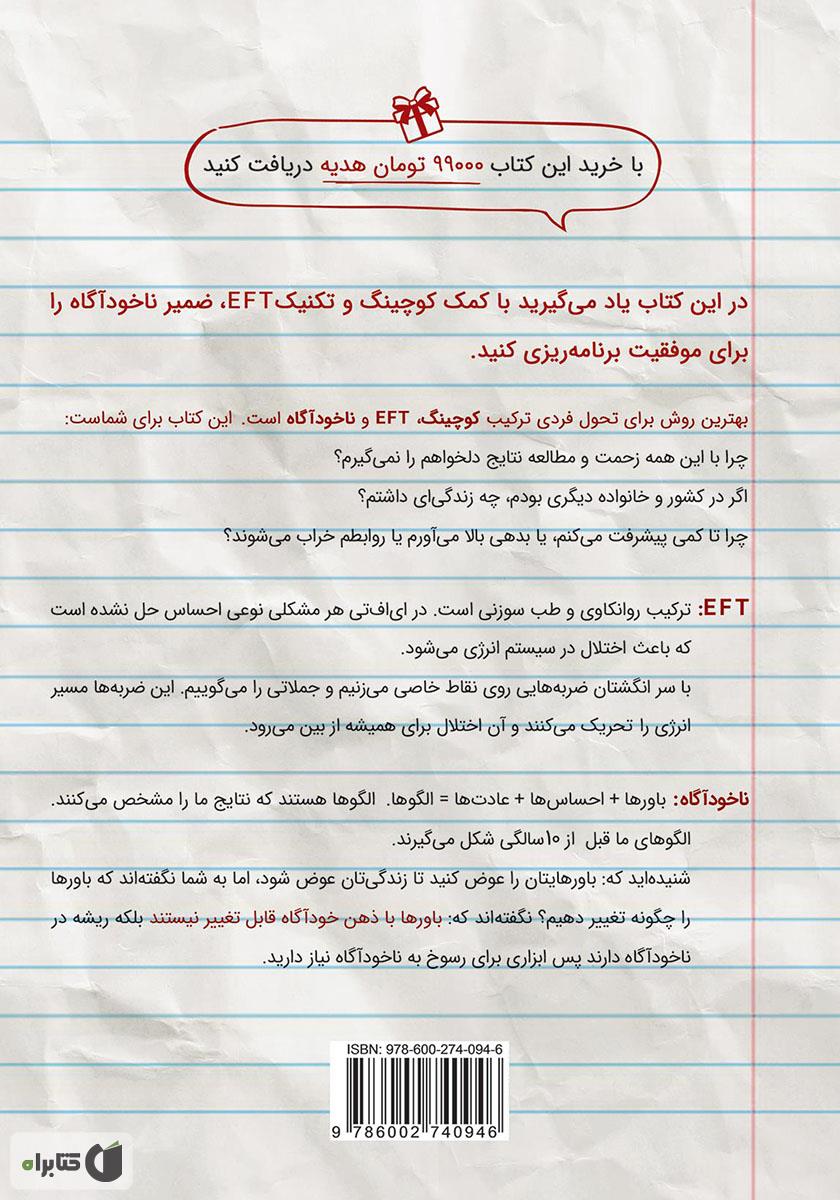 با خرید این کتاب ۹۹۰۰۰ تومان هدیه دریافت کنید
در این کتاب یاد می‌گیرید با کمک کوچینگ و تکنیکEFT، ضمیر ناخودآگاه را
برای موفقیت برنامه‌ریزی کنید.
بهترین روش برای تحول فردی ترکیب کوچینگ، EFT و ناخودآگاه است. این کتاب برای شماست:
چرا با این همه زحمت و مطالعه نتایج دلخواهم را نمی‌گیرم؟
اگر در کشور و خانواده دیگری بودم، چه زندگی‌ای داشتم؟
چرا تا کمی پیشرفت می‌کنم، یا بدهی بالا می‌آورم یا روابطم خراب می‌شوند؟
EFT: ترکیب روانکاوی و طب سوزنی است. در ای‌اف‌تی هر مشکلی نوعی احساس حل نشده است
که باعث اختلال در سیستم انرژی می‌شود.
با سر انگشتان ضربه‌هایی روی نقاط خاصی می‌زنیم و جملاتی را می‌گوییم. این ضربه‌ها مسیر
انرژی را تحریک می‌کنند و آن اختلال برای همیشه از بین می‌رود.
ناخودآگاه: باورها + احساس‌ها + عادت‌ها = الگوها. الگوها هستند که نتایج ما را مشخص می‌کنند.
الگوهای ما قبل از ۱۰سالگی شکل می‌گیرند.
شنیده‌اید که: باورهایتان را عوض کنید تا زندگی‌تان عوض شود، اما به شما نگفته‌اند که باورها
را چگونه تغییر دهیم؟ نگفته‌اند که: باورها با ذهن خودآگاه قابل تغییر نیستند بلکه ریشه در
ناخودآگاه دارند پس ابزاری برای رسوخ به ناخودآگاه نیاز دارید.
ISBN: 978-600-274-094-6
9 786002 740946
کتابراه